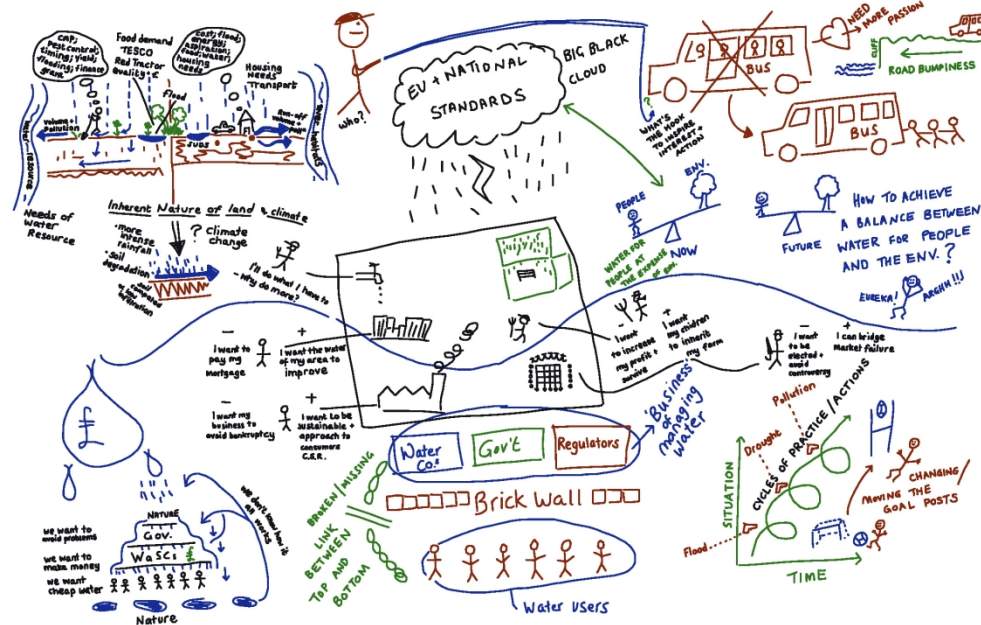 CAP;
pest control;
timing; yield;
flooding; finance
grans
Food demand
TESCO
Red Tractor
Quality £
flood
cost; flood;
energy;
aspiration;
food; water;
housing
needs
Housing
Needs
Transport
Volume +
Pollution
Run-off
volume +
SUDS
Water resource
Water habitats
Needs of
Water
Resource
Inherent Nature of land & climate
• more
intense
rainfall
• soil
degradation
? Climate
change
compacted
or low
infiltration
WHO?
EU + NATIONAL
STANDARDS
BIG BLACK
CLOUD
?
WHAT'S
THE HOOK
TO INSPIRE
INTEREST +
ACTION
BUS
NEED
MORE
PASSION
CLIFF
ROAD BUMPINESS
BUS
PEOPLE
ENV.
NOW
WATER FOR
PEOPLE AT
THE EXPENSE
OF ENV.
FUTURE
HOW TO ACHIEVE
A BALANCE BETWEEN
WATER FOR PEOPLE
AND THE ENV.?
EUREKA!
ARGHH!!!
I'll do what I have to
- why do more?
-
I want to
pay my
mortgage
+
I want the water
of my area to
improve
-
I want my
business to
avoid bankruptcy
+
I want to be
sustainable +
approach to
consumers
C.S.R.
-
I want
to increase
my profit +
survive
+
I want
my children
to inherit
my farm
-
I want
to be
elected +
avoid
controversy
+
I can bridge
Market failure
£
NATURE
Gov.
WaSCs £
we want to
avoid problems
we want to
make money
we want
cheap water
Nature
we don't know how it
all works
Water
Co.s
Gov't
Regulators
'Business'
of
managing
water
Brick Wall
BROKEN/MISSING
LINK
BETWEEN
TOP AND
BOTTOM
Water Users
SITUATION
TIME
Flood
Drought
Pollution
CYCLES OF PRACTICE/ACTIONS
CHANGING/
MOVING THE
GOAL POSTS